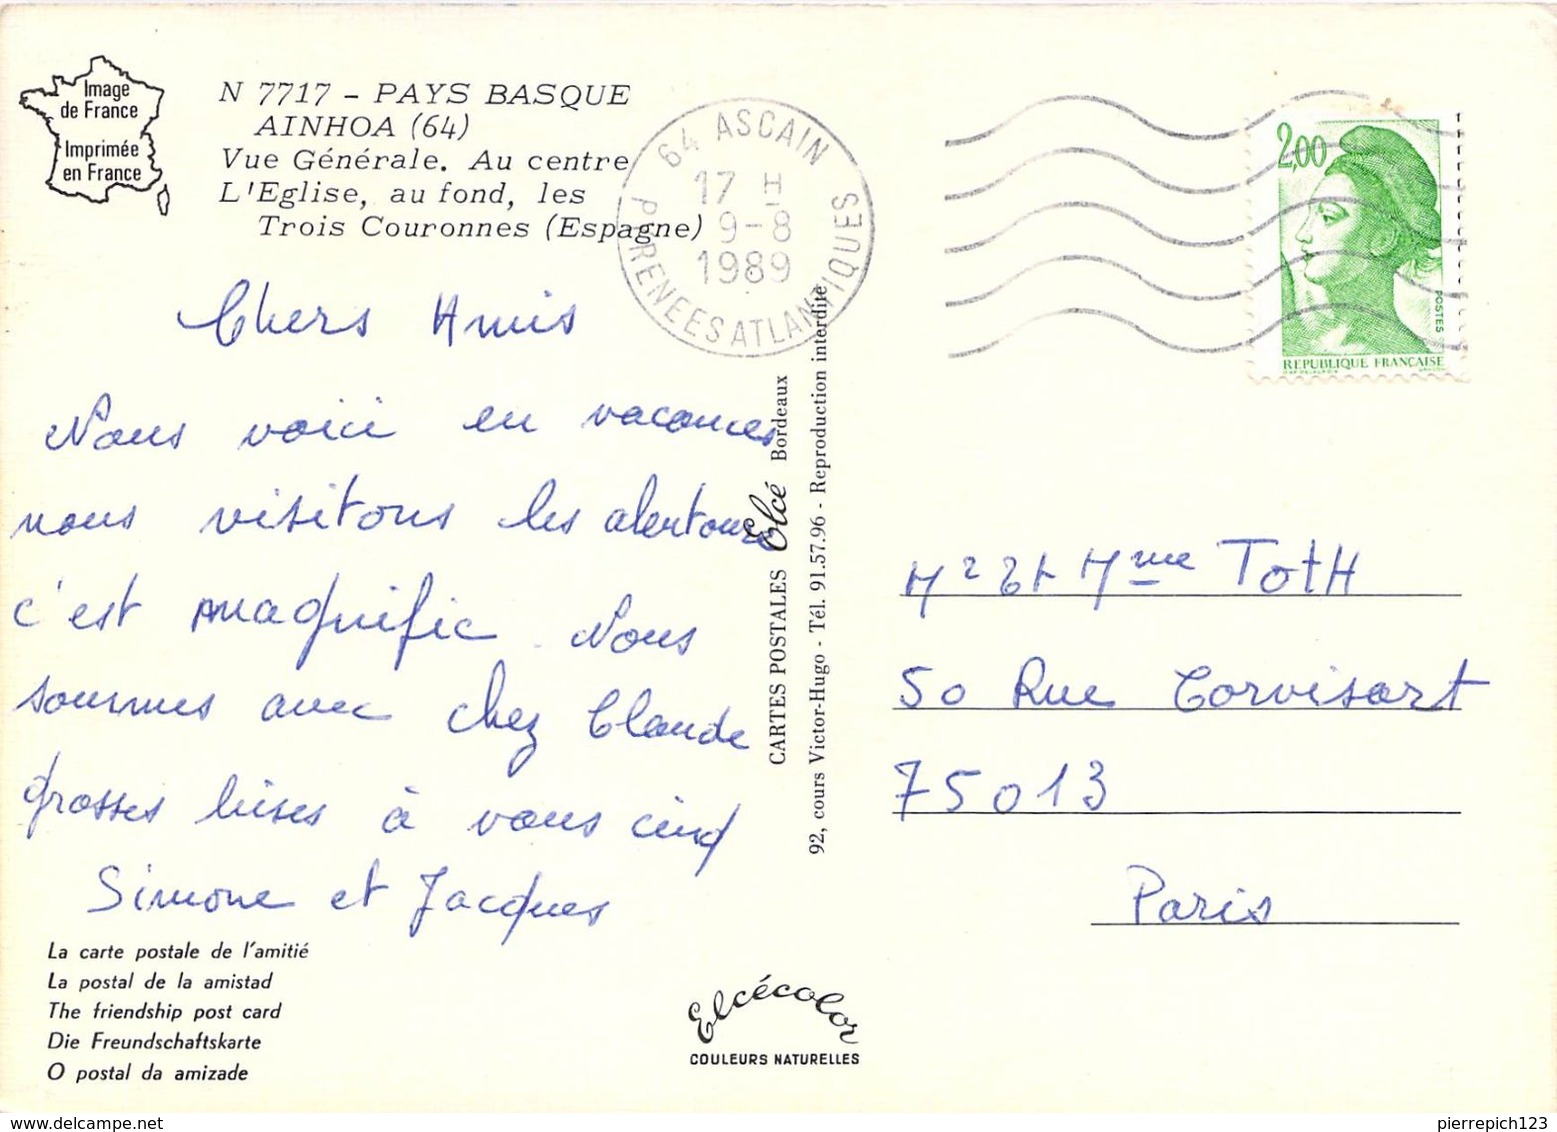 Image
de France
Imprimée
en France
N 7717 - PAYS BASQUE
AINHOA (64)
Vue Générale. Au centre
L'Eglise, au fond, les
Trois Couronnes (Espagne)
64 ASCAIN
17 H
9-8
1989
PYRENEES ATLANTIQUES
2,00
POSTES
REPUBLIQUE FRANÇAISE
Chers Amis
Nous voici en vacances
nous visitons les alentours
c'est magnific. Nous
sommes avec chez Claude
grosses bises à vous cinq
Simone et Jacques
CARTES POSTALES Elcé Bordeaux
92, cours Victor-Hugo - Tél. 91.57.96 - Reproduction interdite
Mr et Mme TotH
50 Rue Corvisart
75013
Paris
La carte postale de l'amitié
La postal de la amistad
The friendship post card
Die Freundschaftskarte
O postal da amizade
Elcécolor
COULEURS NATURELLES
pierrepich123